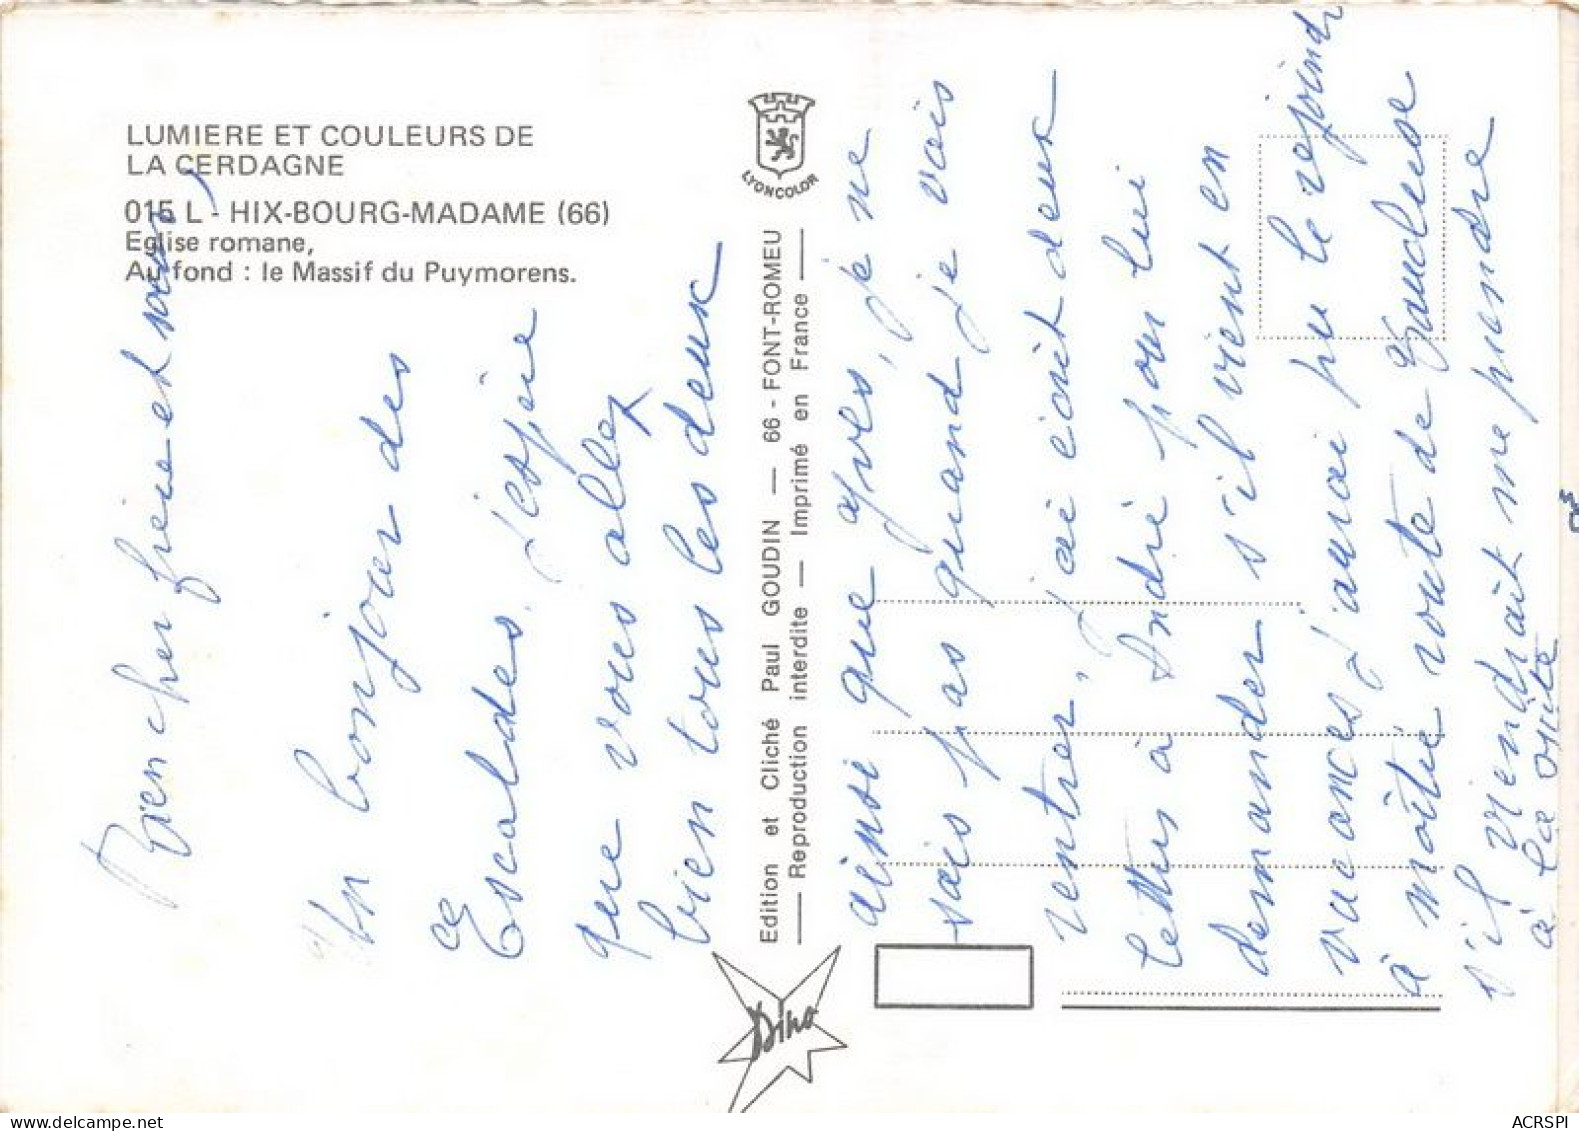 LUMIERE ET COULEURS DE
LA CERDAGNE
015 L - HIX-BOURG-MADAME (66)
Eglise romane,
Au fond : le Massif du Puymorens.
LYONCOLOR
Edition et Cliché Paul GOUDIN — 66 - FONT-ROMEU
— Reproduction interdite — Imprimé en France —
Dino
Bien cher frère et
Un bonjour des
Escaldes. J'espère
que vous allez
bien tous les deux
ainsi que après, je ne
sais pas quand je vais
rentrer, j'ai écrit deux
lettres à André pour lui
demander s'il vient en
vacances, j'aurai pu le rejoindre
à moîtié route de Vaucluse
s'il viendrait me prendre
à la
ACRSPI